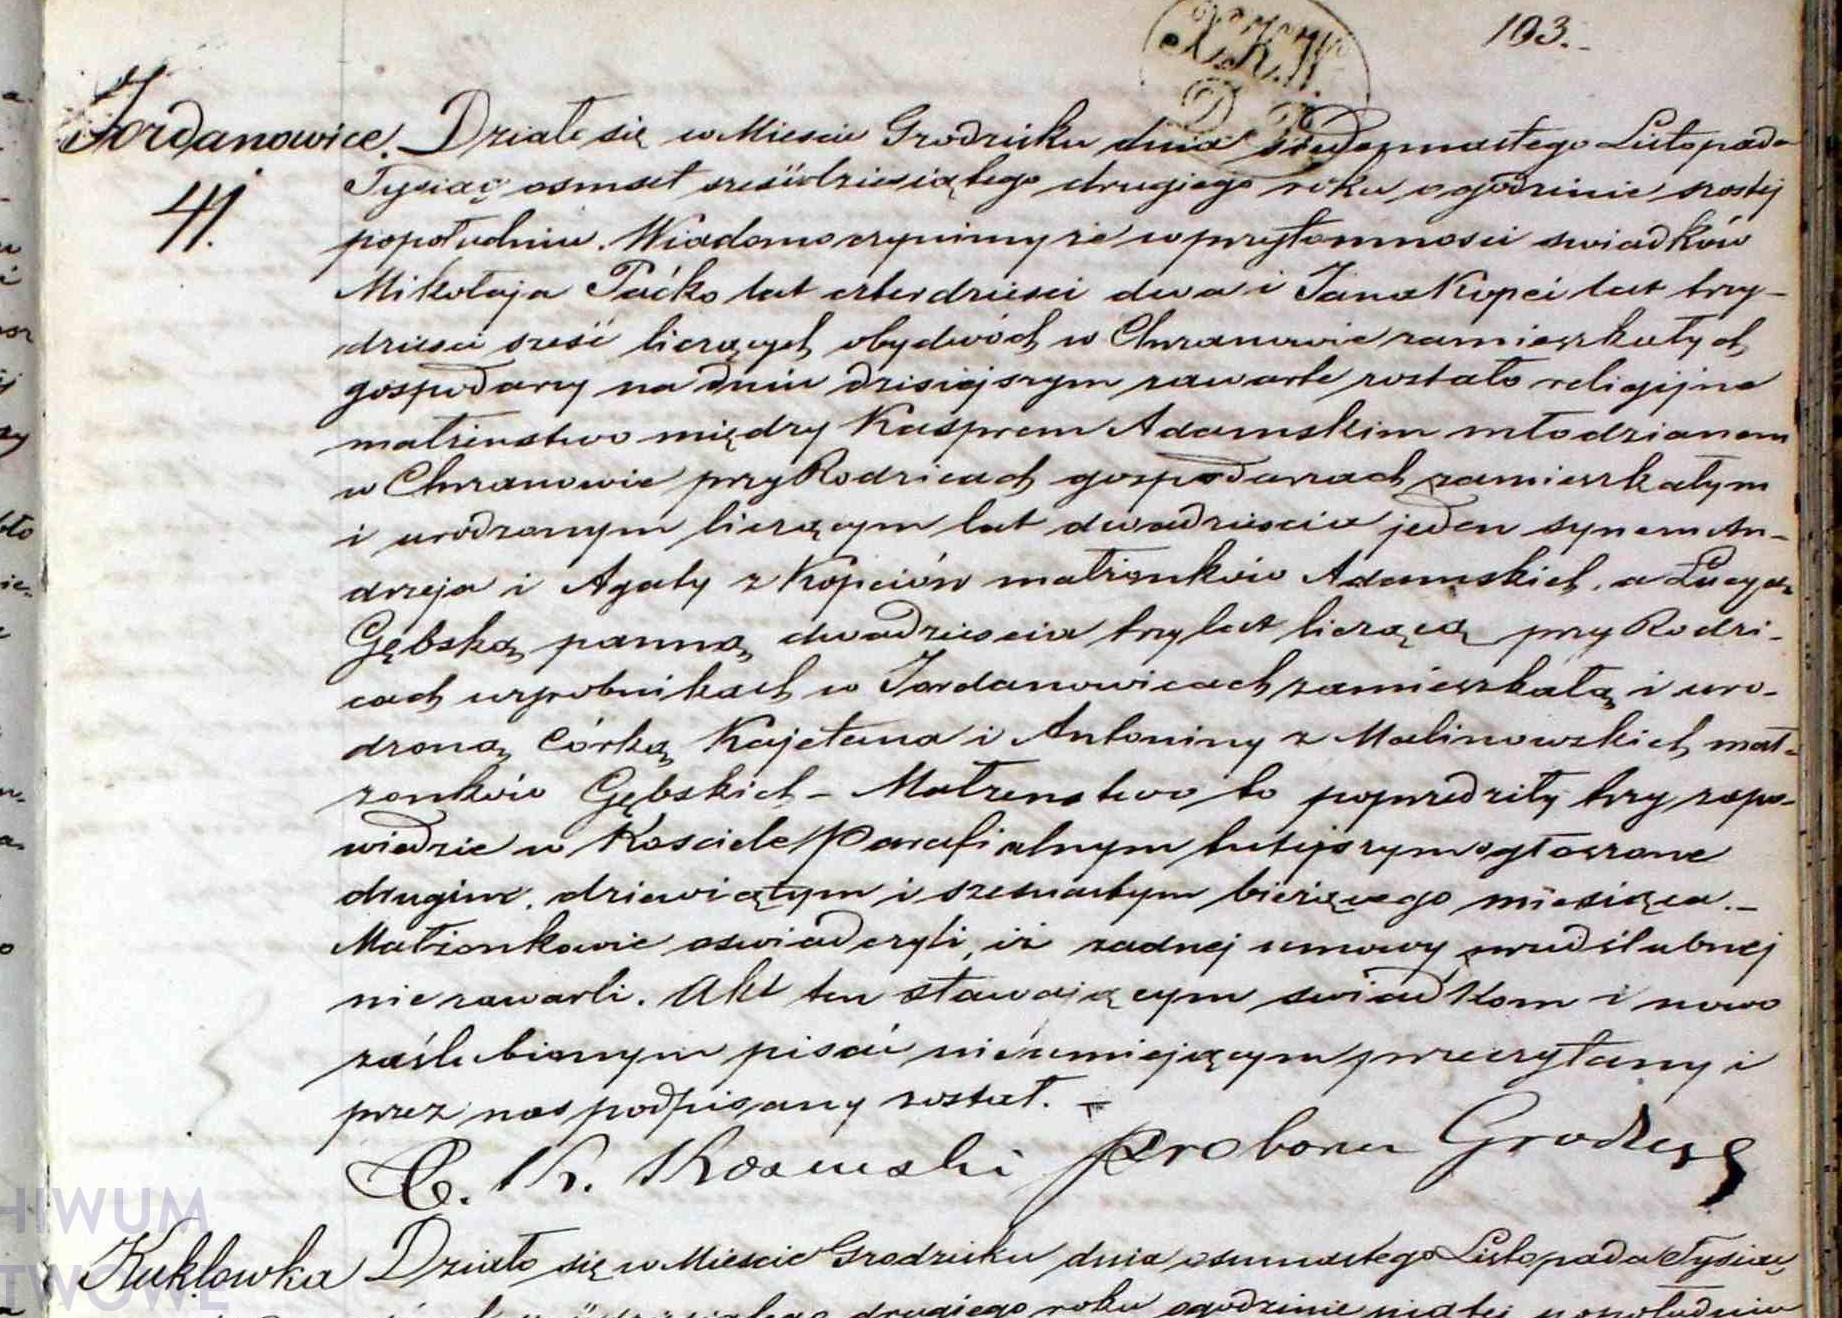 103.
Jordanowice.
41.
Działo się w Mieście Grodzisku dnia siedemnastego Listopada
Tysiąc osmset sześśdziesiątego drugiego roku o godzinie szostej
popołudniu. Wiadomo czynimy że w przytomnosci swiadków
Mikołaja Paćko lat czterdziesci dwa i Jana Kopci lat trzy-
dziesci sześć liczących obydwóch w Chrzanowie zamieszkałych
gospodarzy na dniu dzisiejszym zawarte zostało religijne
małżenstwo między Kasprem Adamskim młodzianem
w Chrzanowie przy Rodzicach gospodarzach zamieszkałym
i urodzonym liczącym lat dwadziescia jeden synem An-
drzeja i Agaty z Kopciów małżonków Adamskich, a Lucyą
Gębską panną, dwadziescia trzy lat liczącą przy Rodzi-
cach wyrobnikach w Jordanowicach zamieszkałą i uro-
dzoną, córką Kajetana i Antoniny z Malinowskich mał-
żonków Gębskich – Małżenstwo to poprzedziły trzy zapo-
wiedzie w Kosciele Parafialnym tutejszym ogłoszone
drugim, dziewiątym i szesnastym bieżącego miesiąca. –
Małżonkowie oswiadczyli, iż żadnej umowy przedślubnej
nie zawarli. Akt ten stawającym swiadkom i nowo
zaślubionym pisać nieumiejącym przeczytany i
przez nas podpisany został. –
K. Kosuski Proboszcz Grodziski
HIWUM
TWOWE
Kuklowka
Działo się w Mieście Grodzisku dnia osmnastego Listopada Tysiąc
drugiego roku o godzinie piątej popołudniu